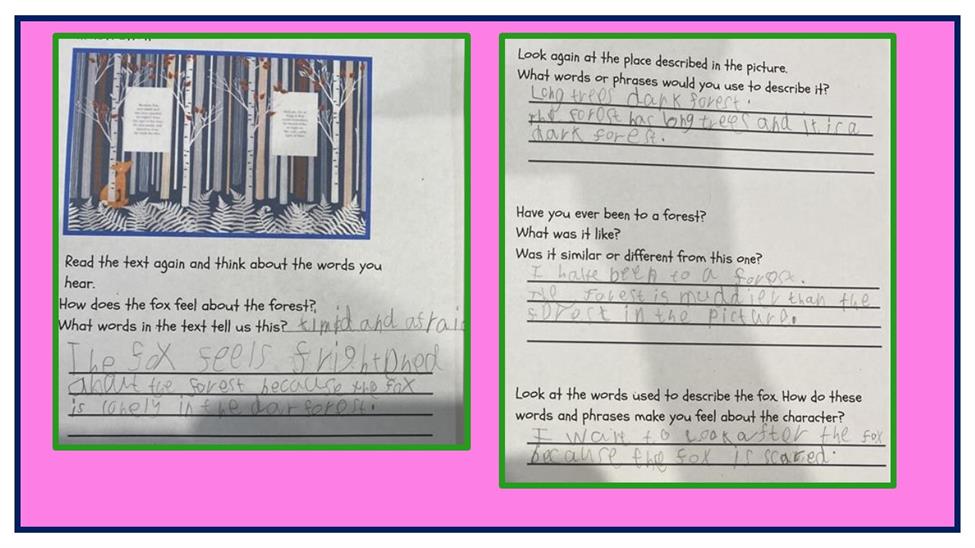 Read the text again and think about the words you
hear.
How does the fox feel about the forest?
What words in the text tell us this? timid and afraid
The fox feels frightOned
about the forest because the fox
is lonely in the dar forest.
Look again at the place described in the picture.
What words or phrases would you use to describe it?
Long trees dark forest.
The forest has long trees and it is a
dark forest.
Have you ever been to a forest?
What was it like?
Was it similar or different from this one?
I have been to a forest.
The forest is muddier than the
forest in the picture.
Look at the words used to describe the fox. How do these
words and phrases make you feel about the character?
I want to look after the fox
because the fox is scared.